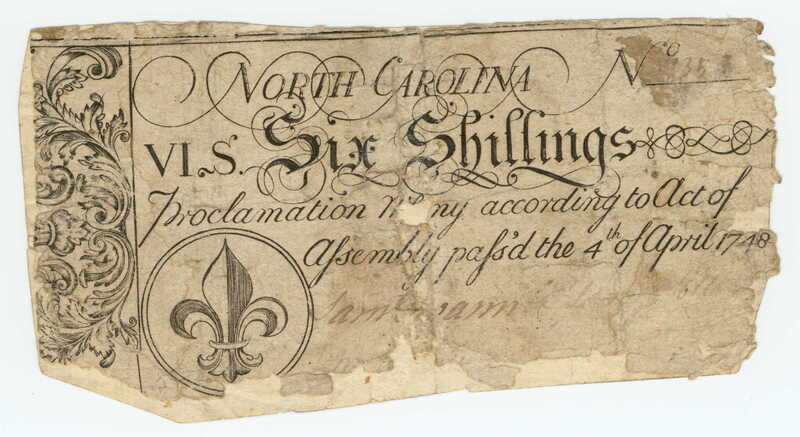 NORTH CAROLINA No
VI.S. Six Shillings
Proclamation M ny according to Act of
Aſsembly paſs'd the 4th of April 1748